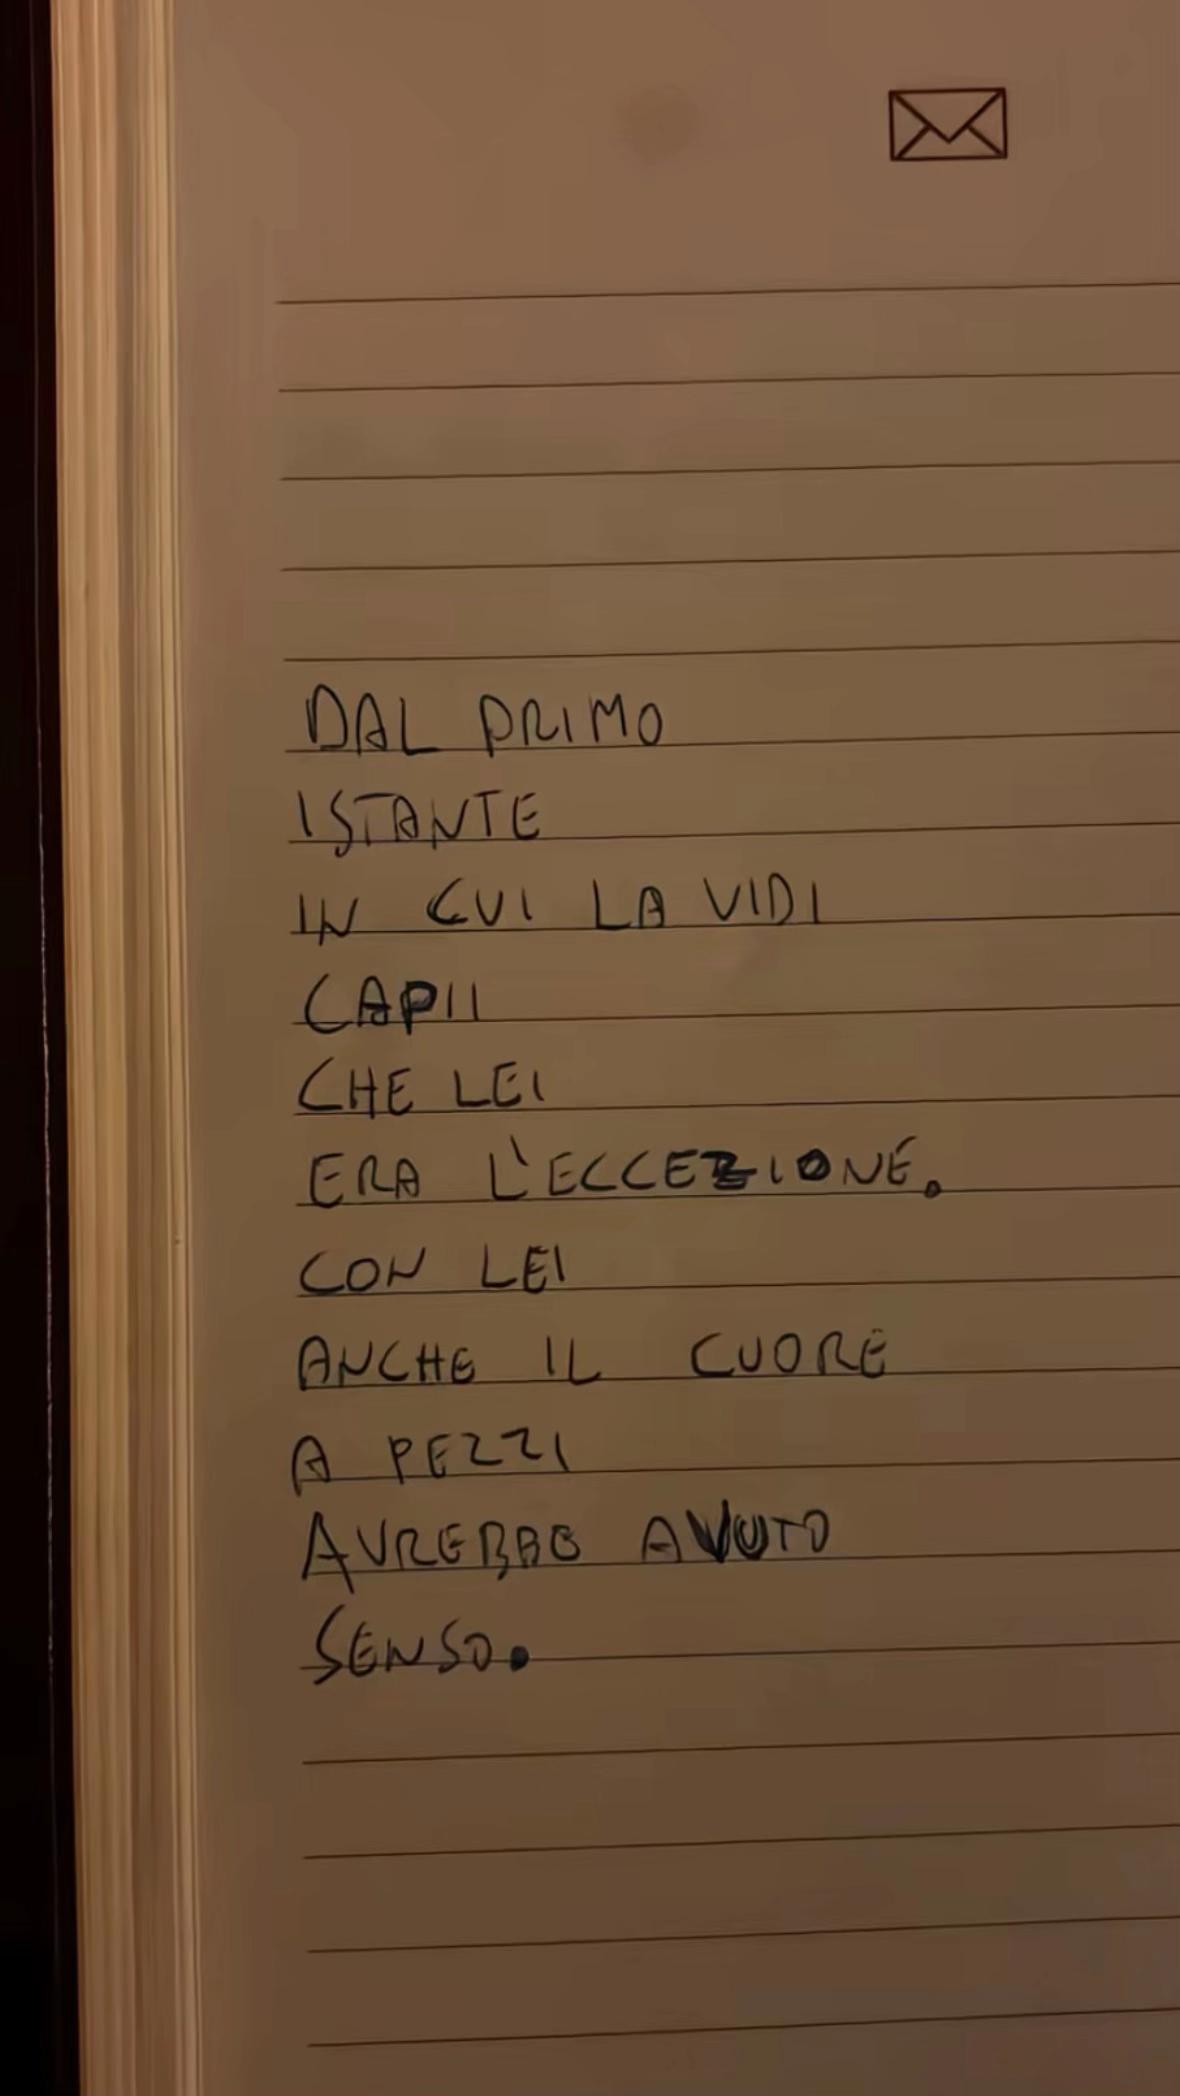 DAL PRIMO
ISTANTE
IN CUI LA VIDI
CAPII
CHE LEI
ERA L'ECCEZIONE.
CON LEI
ANCHE IL CUORE
A PEZZI
AVREBBE AVUTO
SENSO.